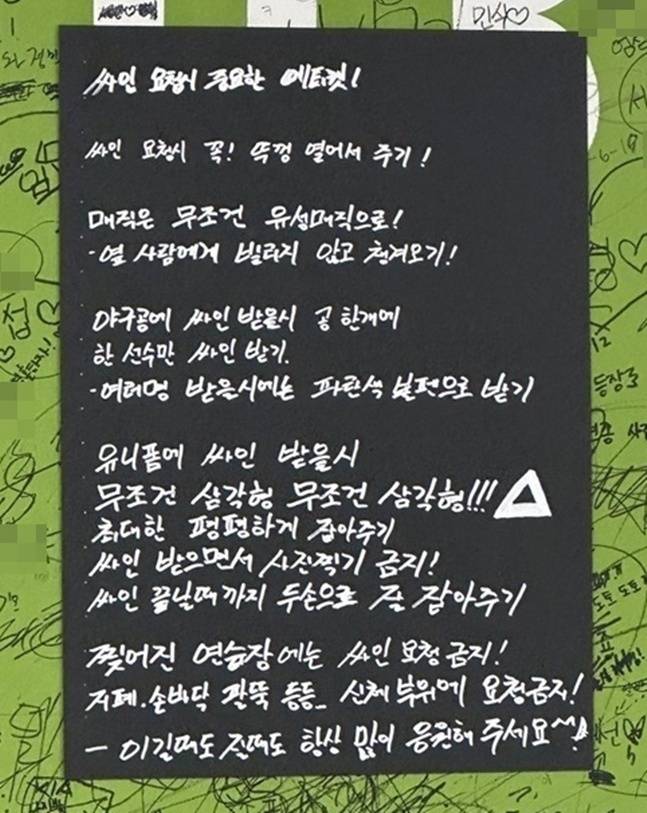 민식♡
싸인 요청시 중요한 에티켓!
싸인 요청시 꼭! 뚜껑 열어서 주기!
매직은 무조건 유성매직으로!
- 옆 사람에게 빌리지 않고 챙겨오기!
야구공에 싸인 받을시 공 한개에
한 선수만 싸인 받기.
- 여러명 받을시에는 파란색 볼펜으로 받기
유니폼에 싸인 받을시
무조건 삼각형 무조건 삼각형!!!
최대한 평평하게 잡아주기
싸인 받으면서 사진찍기 금지!
싸인 끝날때까지 두손으로 잘 잡아주기
찢어진 연습장에는 싸인 요청금지!
지폐.손바닥 팔뚝 등등_ 신체부위에 요청금지!
- 이길때도 질때도 항상 많이 응원해 주세요^^!
등장곡
KIA